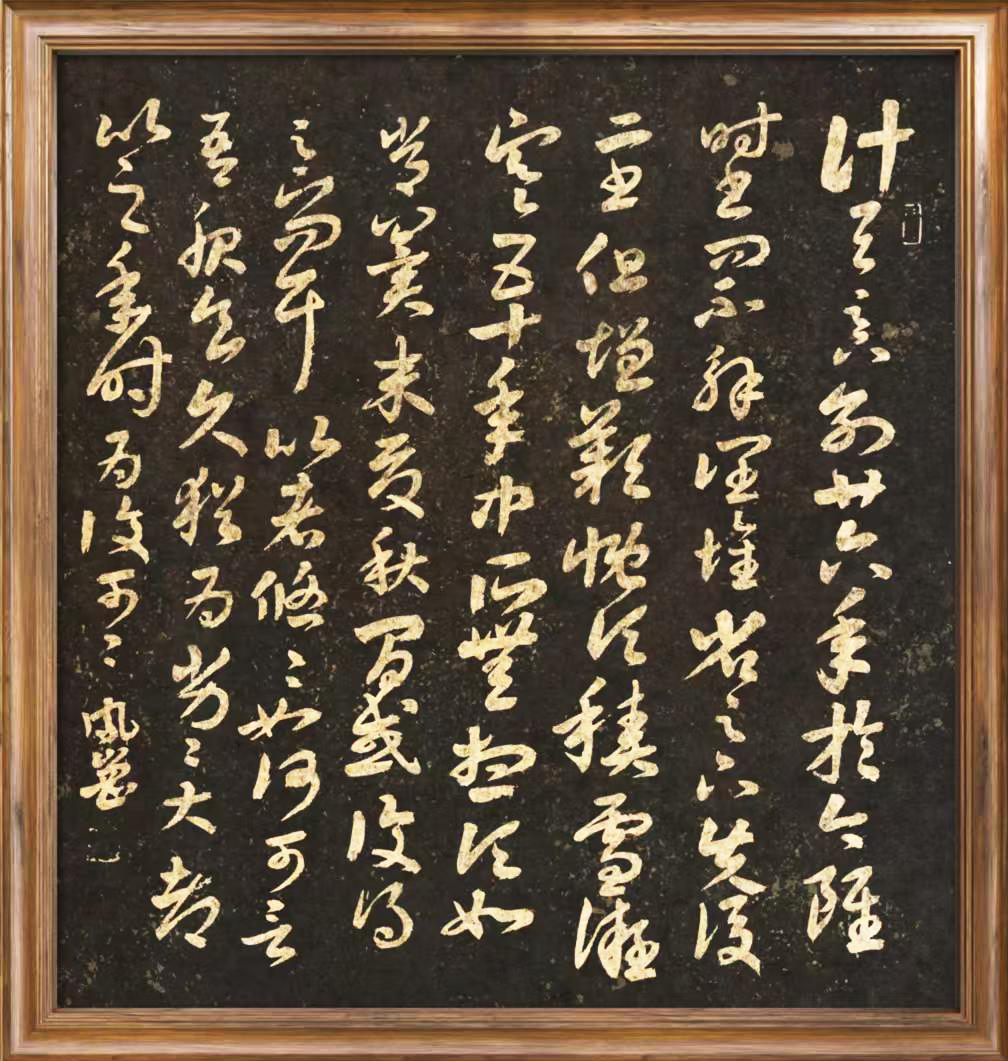 計與足下別廿六年於今雖
時書問不解闊懷省足下先後
二書但增歎慨頃積雪凝
寒五十年中所無想頃如
常冀來夏秋間或復得
足下問耳比者悠悠如何可言
吾服食久猶為劣劣大都
比之年時為復可可